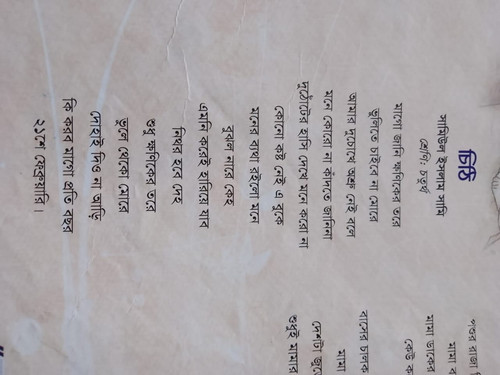 চিঠি
সামিউল ইসলাম সামি
শ্রেণি: চতুর্থ
মাগো জানি ক্ষণিকের তরে
ভুলিতে চাইবে না মোরে
আমার দুচোখে অশ্রু নেই বলে
মনে কোরো না কাঁদতে জানিনা
দুঠোঁটের হাসি দেখে মনে করো না
কোনো কষ্ট নেই এ বুকে
মনের ব্যথা রইলো মনে
বুঝল নাতে কেহ
এমনি করেই হারিয়ে যাব
নিথর হবে দেহ
শুধু ক্ষণিকের তরে
ভুলে থেকো মোরে
দোহাই দিও না আড়ি
কি করব মাগো প্রতি বছর
২১শে ফেব্রুয়ারি।
পণ্ডর রাজা
মামা
মামা ডাকের
কেউ ক
বাঘের চালাক
মামা
দেশটা জুড়ে
শুধুই মামার